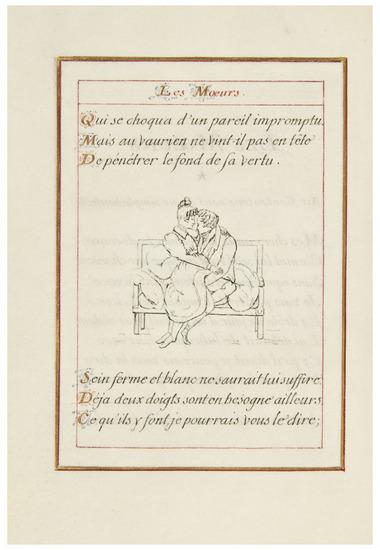 Les Mœurs.
Qui se choqua d'un pareil impromptu.
Mais au vaurien ne vint-il pas en tête
De pénétrer le fond de sa vertu.
Sein ferme et blanc ne saurait lui suffire.
Déja deux doigts sont en besogne ailleurs
Ce qu'ils y font, je pourrais vous le dire;